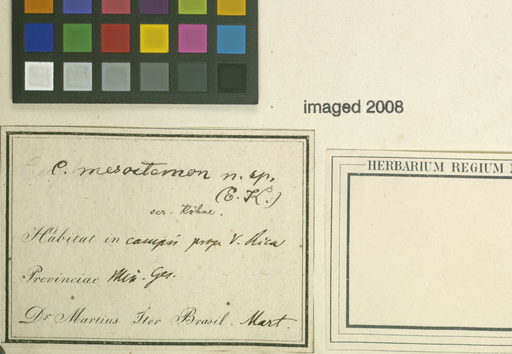 imaged 2008
C. mesostemon n. sp.
(E. K.)
scr. Köhne.
Habitat in campis prope V. Rica
Provinciae Min. Ger.
Dr Martius Iter Brasil. Mart.
HERBARIUM REGIUM